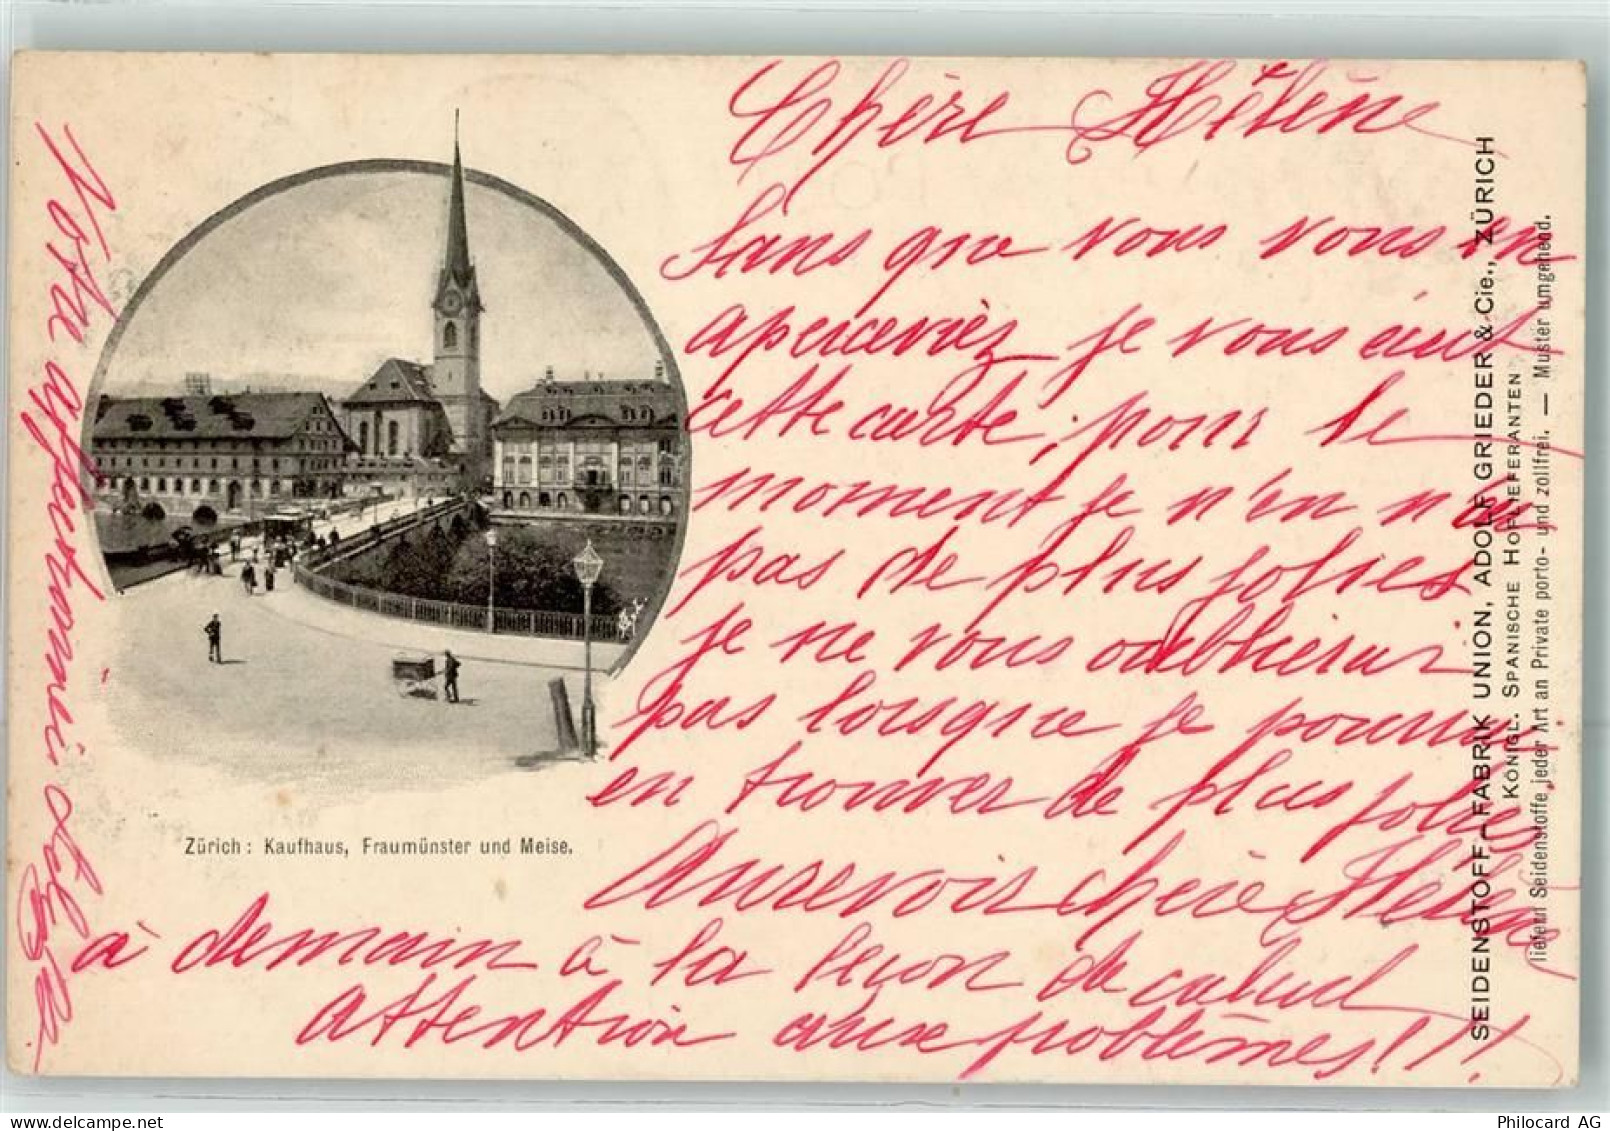 Chère Hélène
Sans que vous vous en
aperceviez je vous écrit
cette carte; pour le
moment je n'en n'ai
pas de plus jolies
je ne vous oublierai
pas lorsque je pourrai
en trouver de plus jolies
Aurevoir chère Hélène
à demain à la leçon de calcul
attention aux problèmes!!!
Votre affectionnée
Zürich: Kaufhaus, Fraumünster und Meise.
SEIDENSTOFF-FABRIK UNION, ADOLF GRIEDER & Cie., ZÜRICH
KÖNIGL. SPANISCHE HOFLIEFERANTEN
liefern Seidenstoffe jeder Art an Private porto- und zollfrei. — Muster umgehend.
Philocard AG